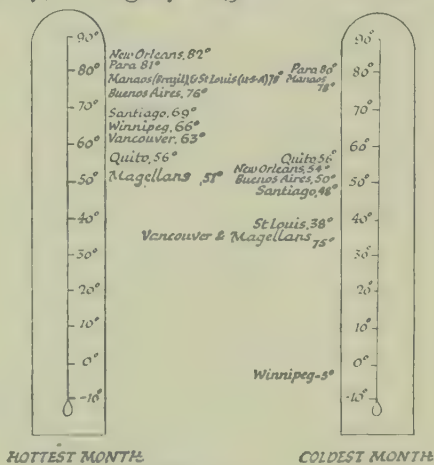 90°
80°
70°
60°
50°
40°
30°
20°
10°
0°
-10°
New Orleans, 82°
Para 81°
Manaos (Brazil) & St Louis (U·S·A) 78°
Buenos Aires, 76°
Santiago, 69°
Winnipeg, 66°
Vancouver, 63°
Quito, 56°
Magellans, 51°
HOTTEST MONTH
Para 80°
Manaos 78°
Quito 56°
New Orleans, 54°
Buenos Aires, 50°
Santiago, 48°
St Louis, 38°
Vancouver & Magellans 75°
Winnipeg -5°
90°
80°
70°
60°
50°
40°
30°
20°
10°
0°
-10°
COLDEST MONTH